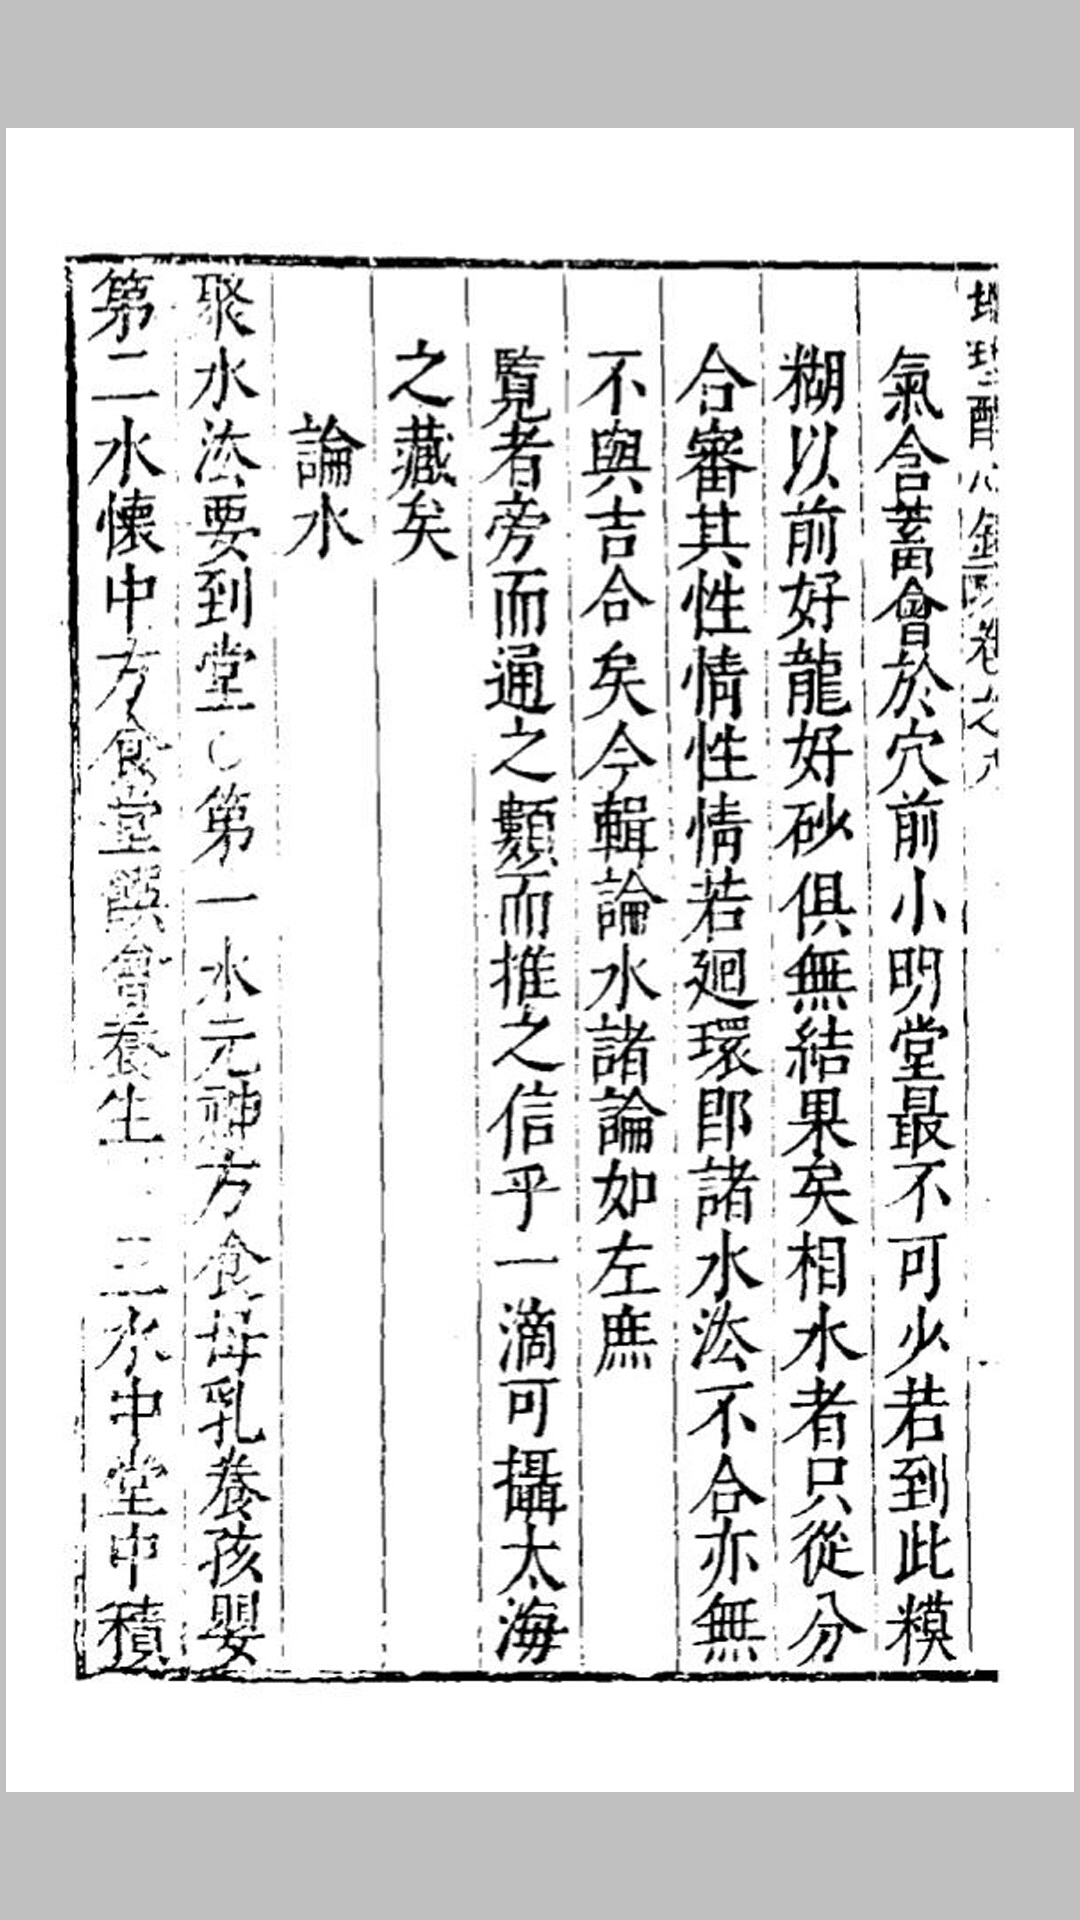 地理醒心錄卷之九
氣含蓄會於穴前小明堂最不可少若到此模
糊以前好龍好砂俱無結果矣相水者只從分
合審其性情性情若廻環即諸水法不合亦無
不與吉合矣今輯論水諸論如左庶
覽者旁而通之類而推之信乎一滴可攝太海
之藏矣
論水
聚水法要到堂○第一水元神方食母乳養孩嬰
第二水懷中方食堂饌會養生 三水中堂中積